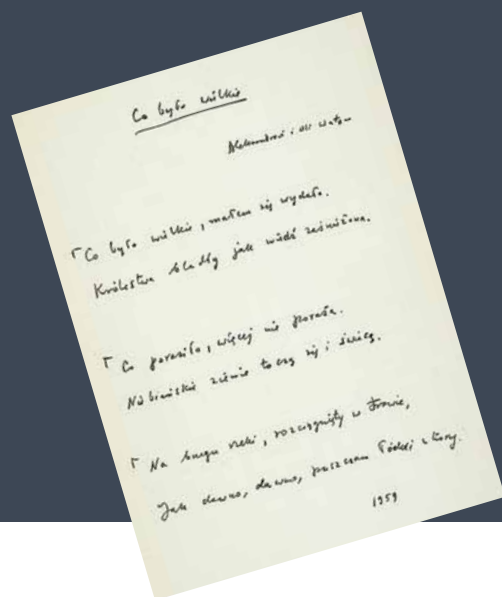 Co było wielkie
Aleksandrowi i Oli Watom
Co było wielkie, małem się wydało.
Królestwa bladły jak miedź zaśnieżona.
Co poraziło, więcej nie poraża.
Niebiańskie ziemie toczą się i świecą.
Na brzegu rzeki, rozciągnięty w trawie,
Jak dawno, dawno, puszczam łódki z kory.
1959